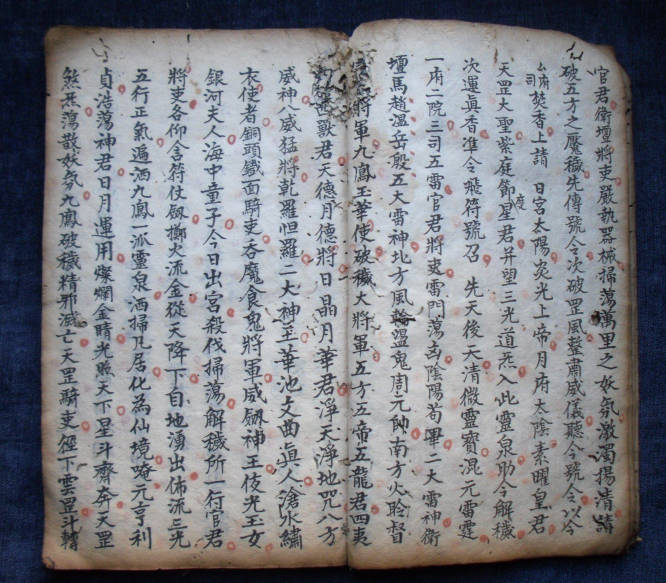 官君衛壇將吏嚴執器械掃蕩萬里之妖氛激濁揚清請
破五方之魘穢先傳號令次破罡風聲肅威儀聽令號令以今
焚香上請　日宮太陽炎光上帝月府太陰素曜皇君
天罡大聖紫庭節度星君并望三光道炁入此靈泉助令解穢
次運眞香準令飛符號召　先天後天清微靈寶混元雷霆
一府二院三司五雷官君將吏雷門蕩凶陰陽苟畢二大雷神衛
壇馬趙溫岳殷五大雷神地方風輪溫鬼周元帥南方火聆督
將軍九鳳玉華使破穢大將軍五方五帝五龍君四夷
獸君天德月德將日晶月華君淨天淨地咒八方
威神八威猛將乾羅怛羅二大神至華池文曲眞人滄水繡
衣使者銅頭鐵面騎吏吞魔食鬼將軍威劔神王伎光玉女
銀河夫人海中童子今日出宮殺伐掃蕩解穢所一行官君
將吏各仰含符仗劔擲火流金從天降下自地湧出佈流三光
五行正氣遍洒九鳳一派靈泉洒掃凡居化為仙境唵元亨利
貞浩蕩神君日月運用燦爛金睛光照天下星斗齊奔天罡
煞炁蕩散妖氛九鳳破穢精邪滅亡天罡騎吏徑下雲罡斗轉